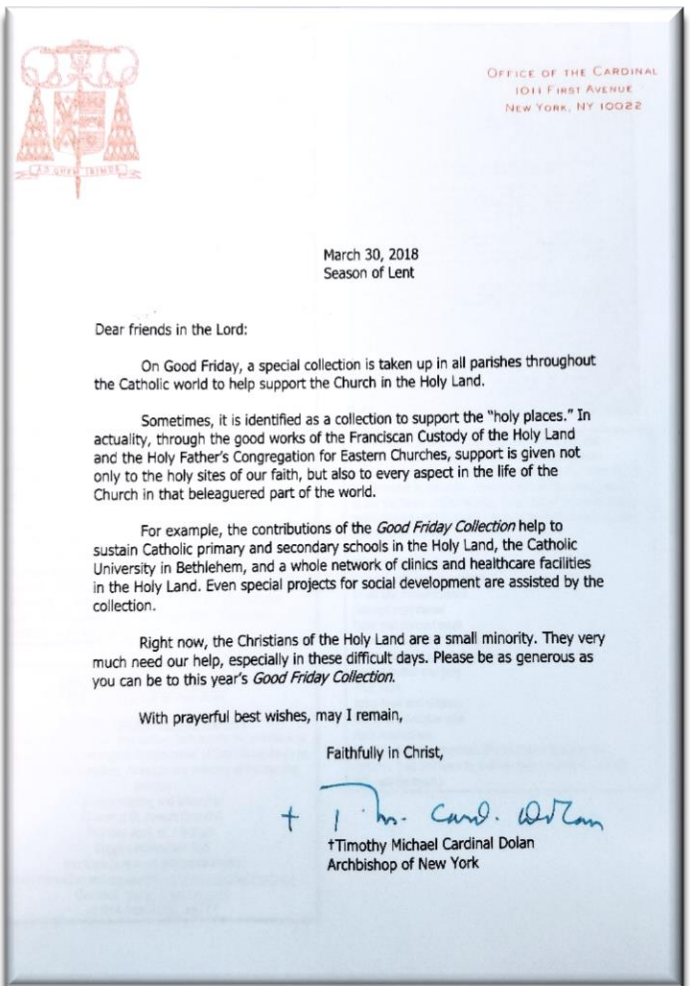 OFFICE OF THE CARDINAL
1011 FIRST AVENUE
NEW YORK, NY 10022
AD QUEM IBIMUS
March 30, 2018
Season of Lent
Dear friends in the Lord:
On Good Friday, a special collection is taken up in all parishes throughout
the Catholic world to help support the Church in the Holy Land.
Sometimes, it is identified as a collection to support the “holy places.” In
actuality, through the good works of the Franciscan Custody of the Holy Land
and the Holy Father’s Congregation for Eastern Churches, support is given not
only to the holy sites of our faith, but also to every aspect in the life of the
Church in that beleaguered part of the world.
For example, the contributions of the Good Friday Collection help to
sustain Catholic primary and secondary schools in the Holy Land, the Catholic
University in Bethlehem, and a whole network of clinics and healthcare facilities
in the Holy Land. Even special projects for social development are assisted by the
collection.
Right now, the Christians of the Holy Land are a small minority. They very
much need our help, especially in these difficult days. Please be as generous as
you can be to this year’s Good Friday Collection.
With prayerful best wishes, may I remain,
Faithfully in Christ,
† T. M. Card. Dolan
†Timothy Michael Cardinal Dolan
Archbishop of New York